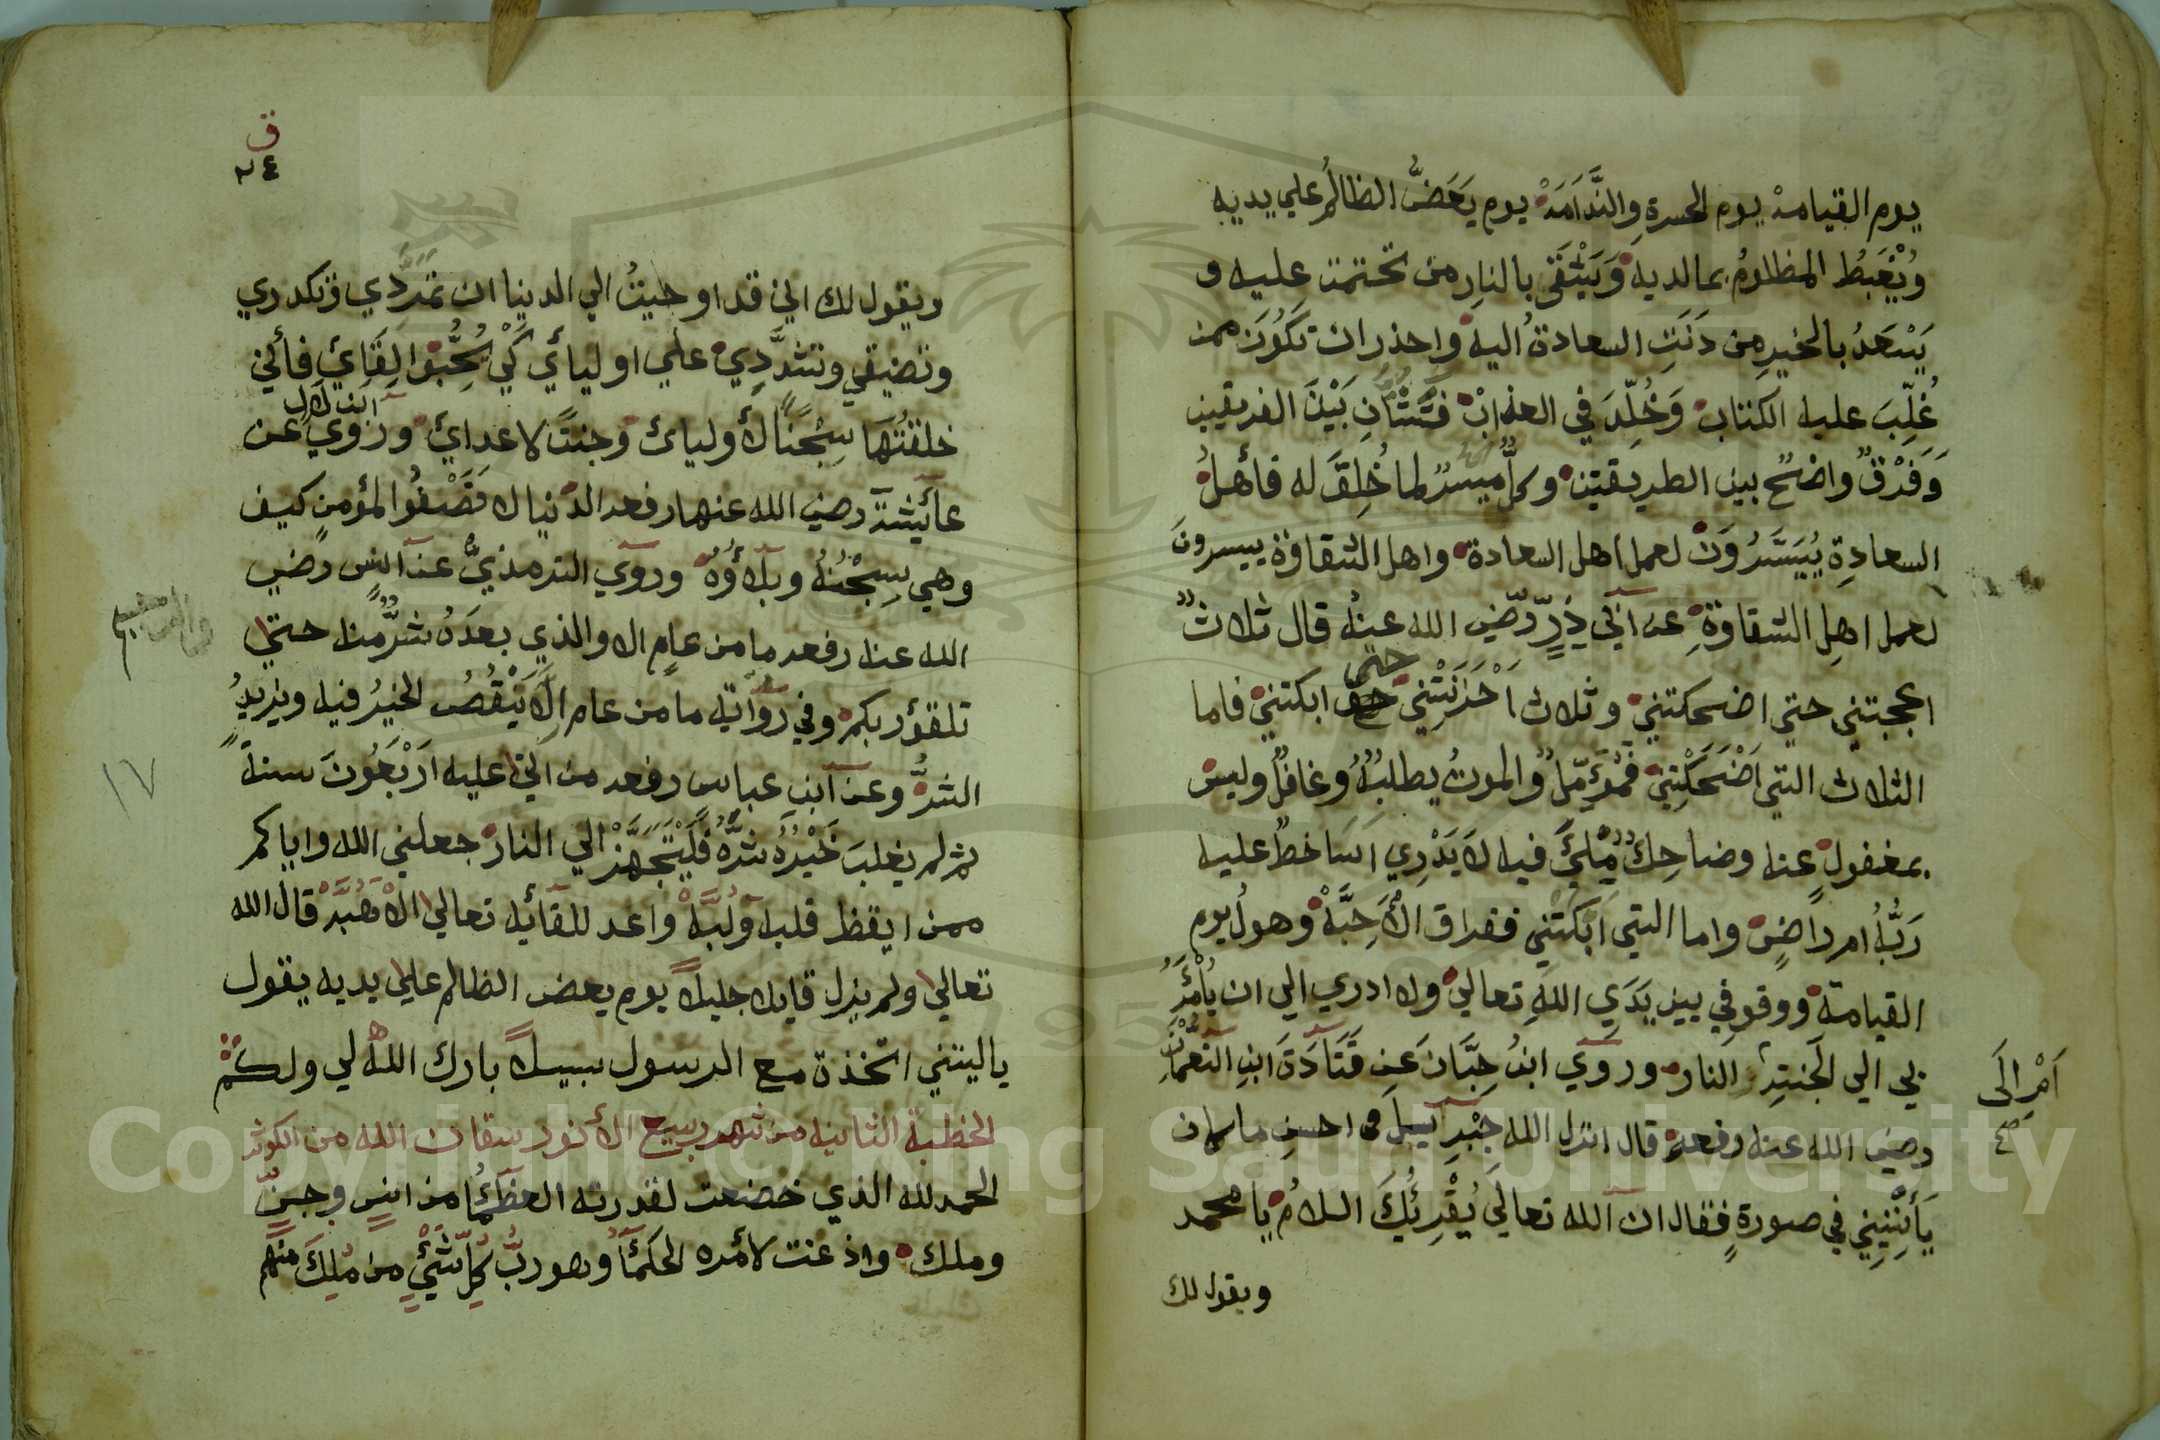 يوم القيامة يوم الحسرة والنَّدَامَةْ يوم يَعَضُّ الظالمُ علي يديه
وُيُغبَطُ المظلومُ بمالديه وَيَشْقَى بالنارِ من تختمت عليه و
يَسْعَدُ بالخيرِ من دَنَتِ السعادةُ اليه واحذر ان تكُونَ ممن
غُلِّبَ عليه الكتاب وَخُلِّدَ في العذابْ فَشَتَّانِ بَيْنَ الفريقين
وَفَرْقٌ واضحٌ بين الطريقتين وكلٌّ ميسرٌ لما خُلِقَ له فأهلُ
السعادةِ يُيَسَّرُوَنْ لعمل اهل السعادة واهل الشقاوة ييسرونَ
لعمل اهلِ الشقاوةِ عن أبي ذَرٍّ رضي الله عنهُ قال ثلاثٌ
اعجبتني حتي اضحكتني وثلاث اَحْزَنَتْني حتى ابكتني فاما
الثلاث التي اَضْحَكَتْنِي فَمُؤَمِّلٌ والموتُ يطلبُهُ وغافلٌ وليس
بمغفولٍ عنه وضاحِكٌ مِّلئَ فيه لا يَدْرِي اَسَاخطٌ عليه
رَبُّهُ ام راضٍ واما التي اَبْكَتْني ففراق الأَحِبَّةْ وهولُ يوم
القيامة ووقوفي بين يَدَيِ اللهِ تعالي ولا ادري الي ان يُأمَرُ
بي الي الجنتِ اَمْ اِلَى النار وروي ابنُ حِبَّانَ عَنِ قَتَادَةَ ابنِ النُّعْمَانِ
رضي الله عنه رفعه قال انزل الله جِبْرَآئيلَ في احسنِ ماكان
يَأتِنِيني في صورةٍ فقال ان آلله تعالَي يُقْرِئُكَ السلامُ يا محمد
ويقول لك
ق
٢٤
ويقول لك اني قد اوحيتُ الي الدنيا ان تمَرَّدِي وتكدري
وتضيقي وتشدَّدِي علي اوليائي كَيْ يُحِبُّوا لِقَائِي فأني
خلقتُهَا سِجْنًا لأوليائ وجنتً لاعدائ وروي ابن لال عن
عائيشة رضي الله عنها رفعه الدّنيا لا تَصْفُوا لمؤمنٍ كيف
وهي سِجْنُهُ وبلاؤُهُ وروَي الترمذيُّ عن آنسٍ رضي
الله عنه رفعه ما من عامٍ الا والذي بعدَهُ شرٌّ منه حتى
تلقؤ ربكم وفي روآيةٍ ما من عامٍ الا يَنْقُصُ الخيرُ فيه ويزيدُ
الشرُّ وعن آبن عباس رفعه من اتي عليه اَرْبَعُونَ سنةً
ثم لم يغلبَ خَيْرُهُ شرَّهُ فَلْيَتَجَهَّزْ الي النار جعلني الله واياكم
ممن ايقظ قلبه وَلُبَّهْ واعد للقآئه تعالي الأُهبَهْ قال الله
تعالي ولم يزل قايلا جليلاً يوم يعض الظالم علي يديه يقول
ياليتني اتخذة مع الرسول سبيلاً بارك اللهُ لي ولكُمْ
الخطبة الثانيه من شهر ربيع الأنور سقانا الله من الكوثر
الحمد لله الذي خضعت لقدرته العظمآُ من انسٍ وجنٍّ
وملك واذعنت لأمره الحكمآُ وهو ربُّ كُلِّ شَيْءٍ من مُلِكَ منهم
١٧